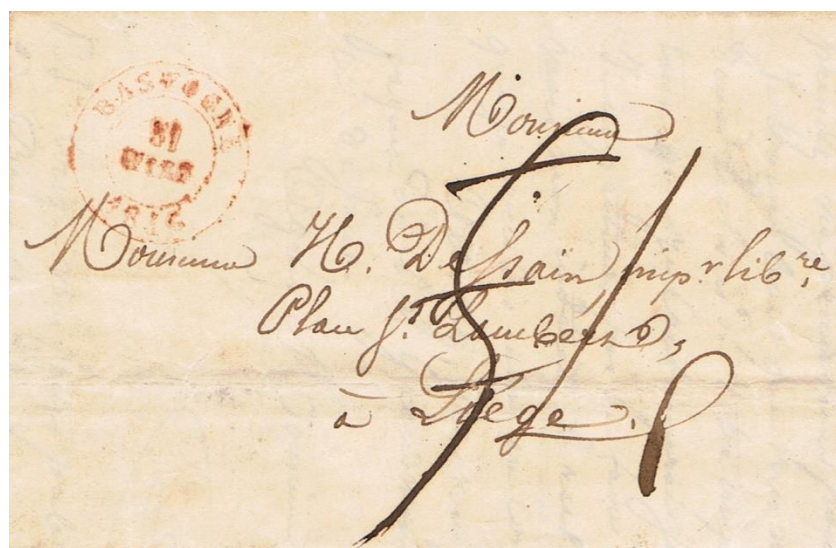 BASTOGNE
31
MARS
Monsieur
Monsieur H. Dessain, imp.r lib.re,
Place St. Lambert,
à Liège.